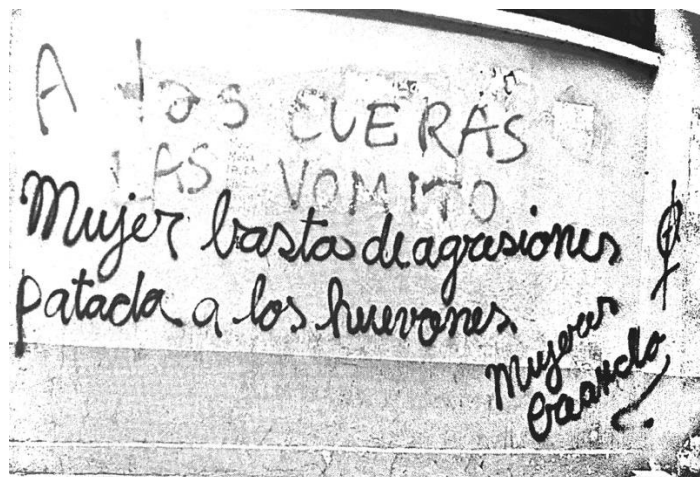 A las CUERAS
LAS VOMITO
Mujer basta de agresiones
patada a los huevones
Mujeres
Creando